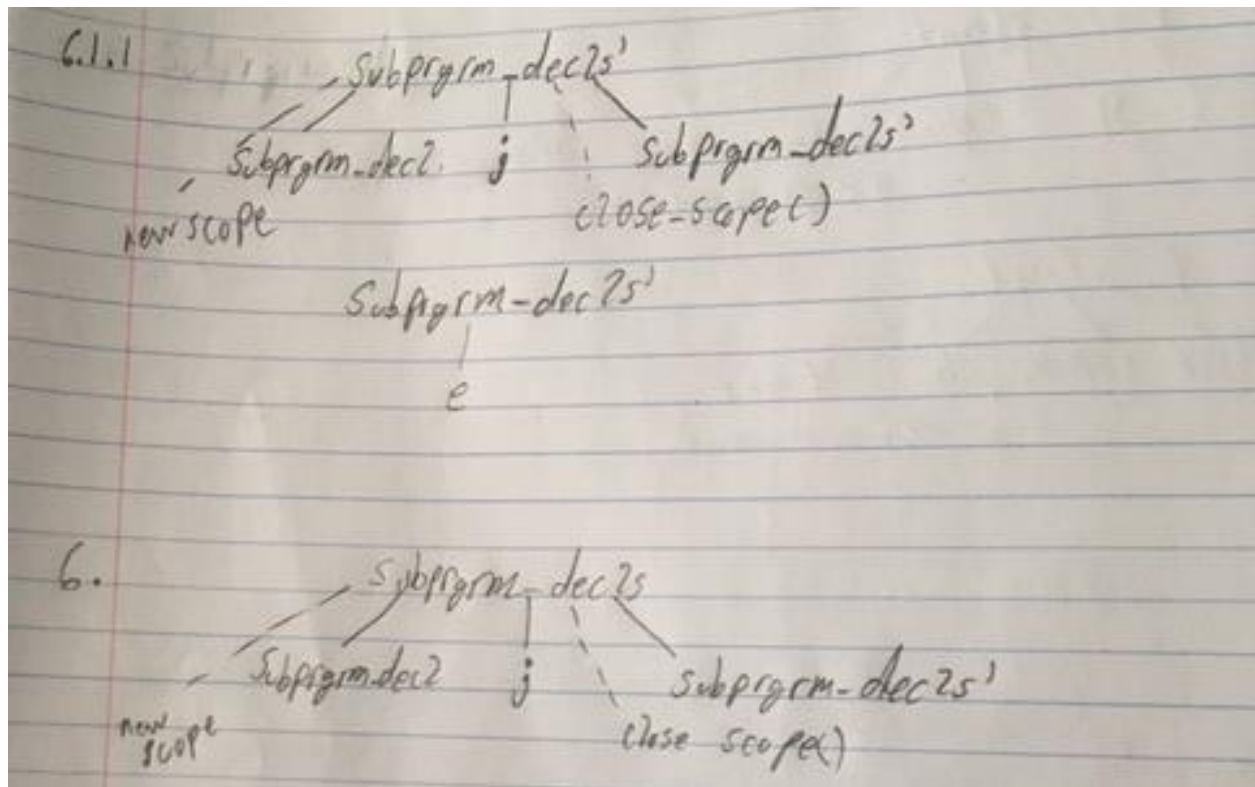 6.1.1 Subprgrm_dec2s'
Subprgrm_dec2. ; Subprgrm_dec2s'
new scope close-scope()
Subprgrm-dec2s'
e
6. Subprgrm_dec2s
Subprgrm-dec2 ; Subprgrm-dec2s'
new scope close scope()